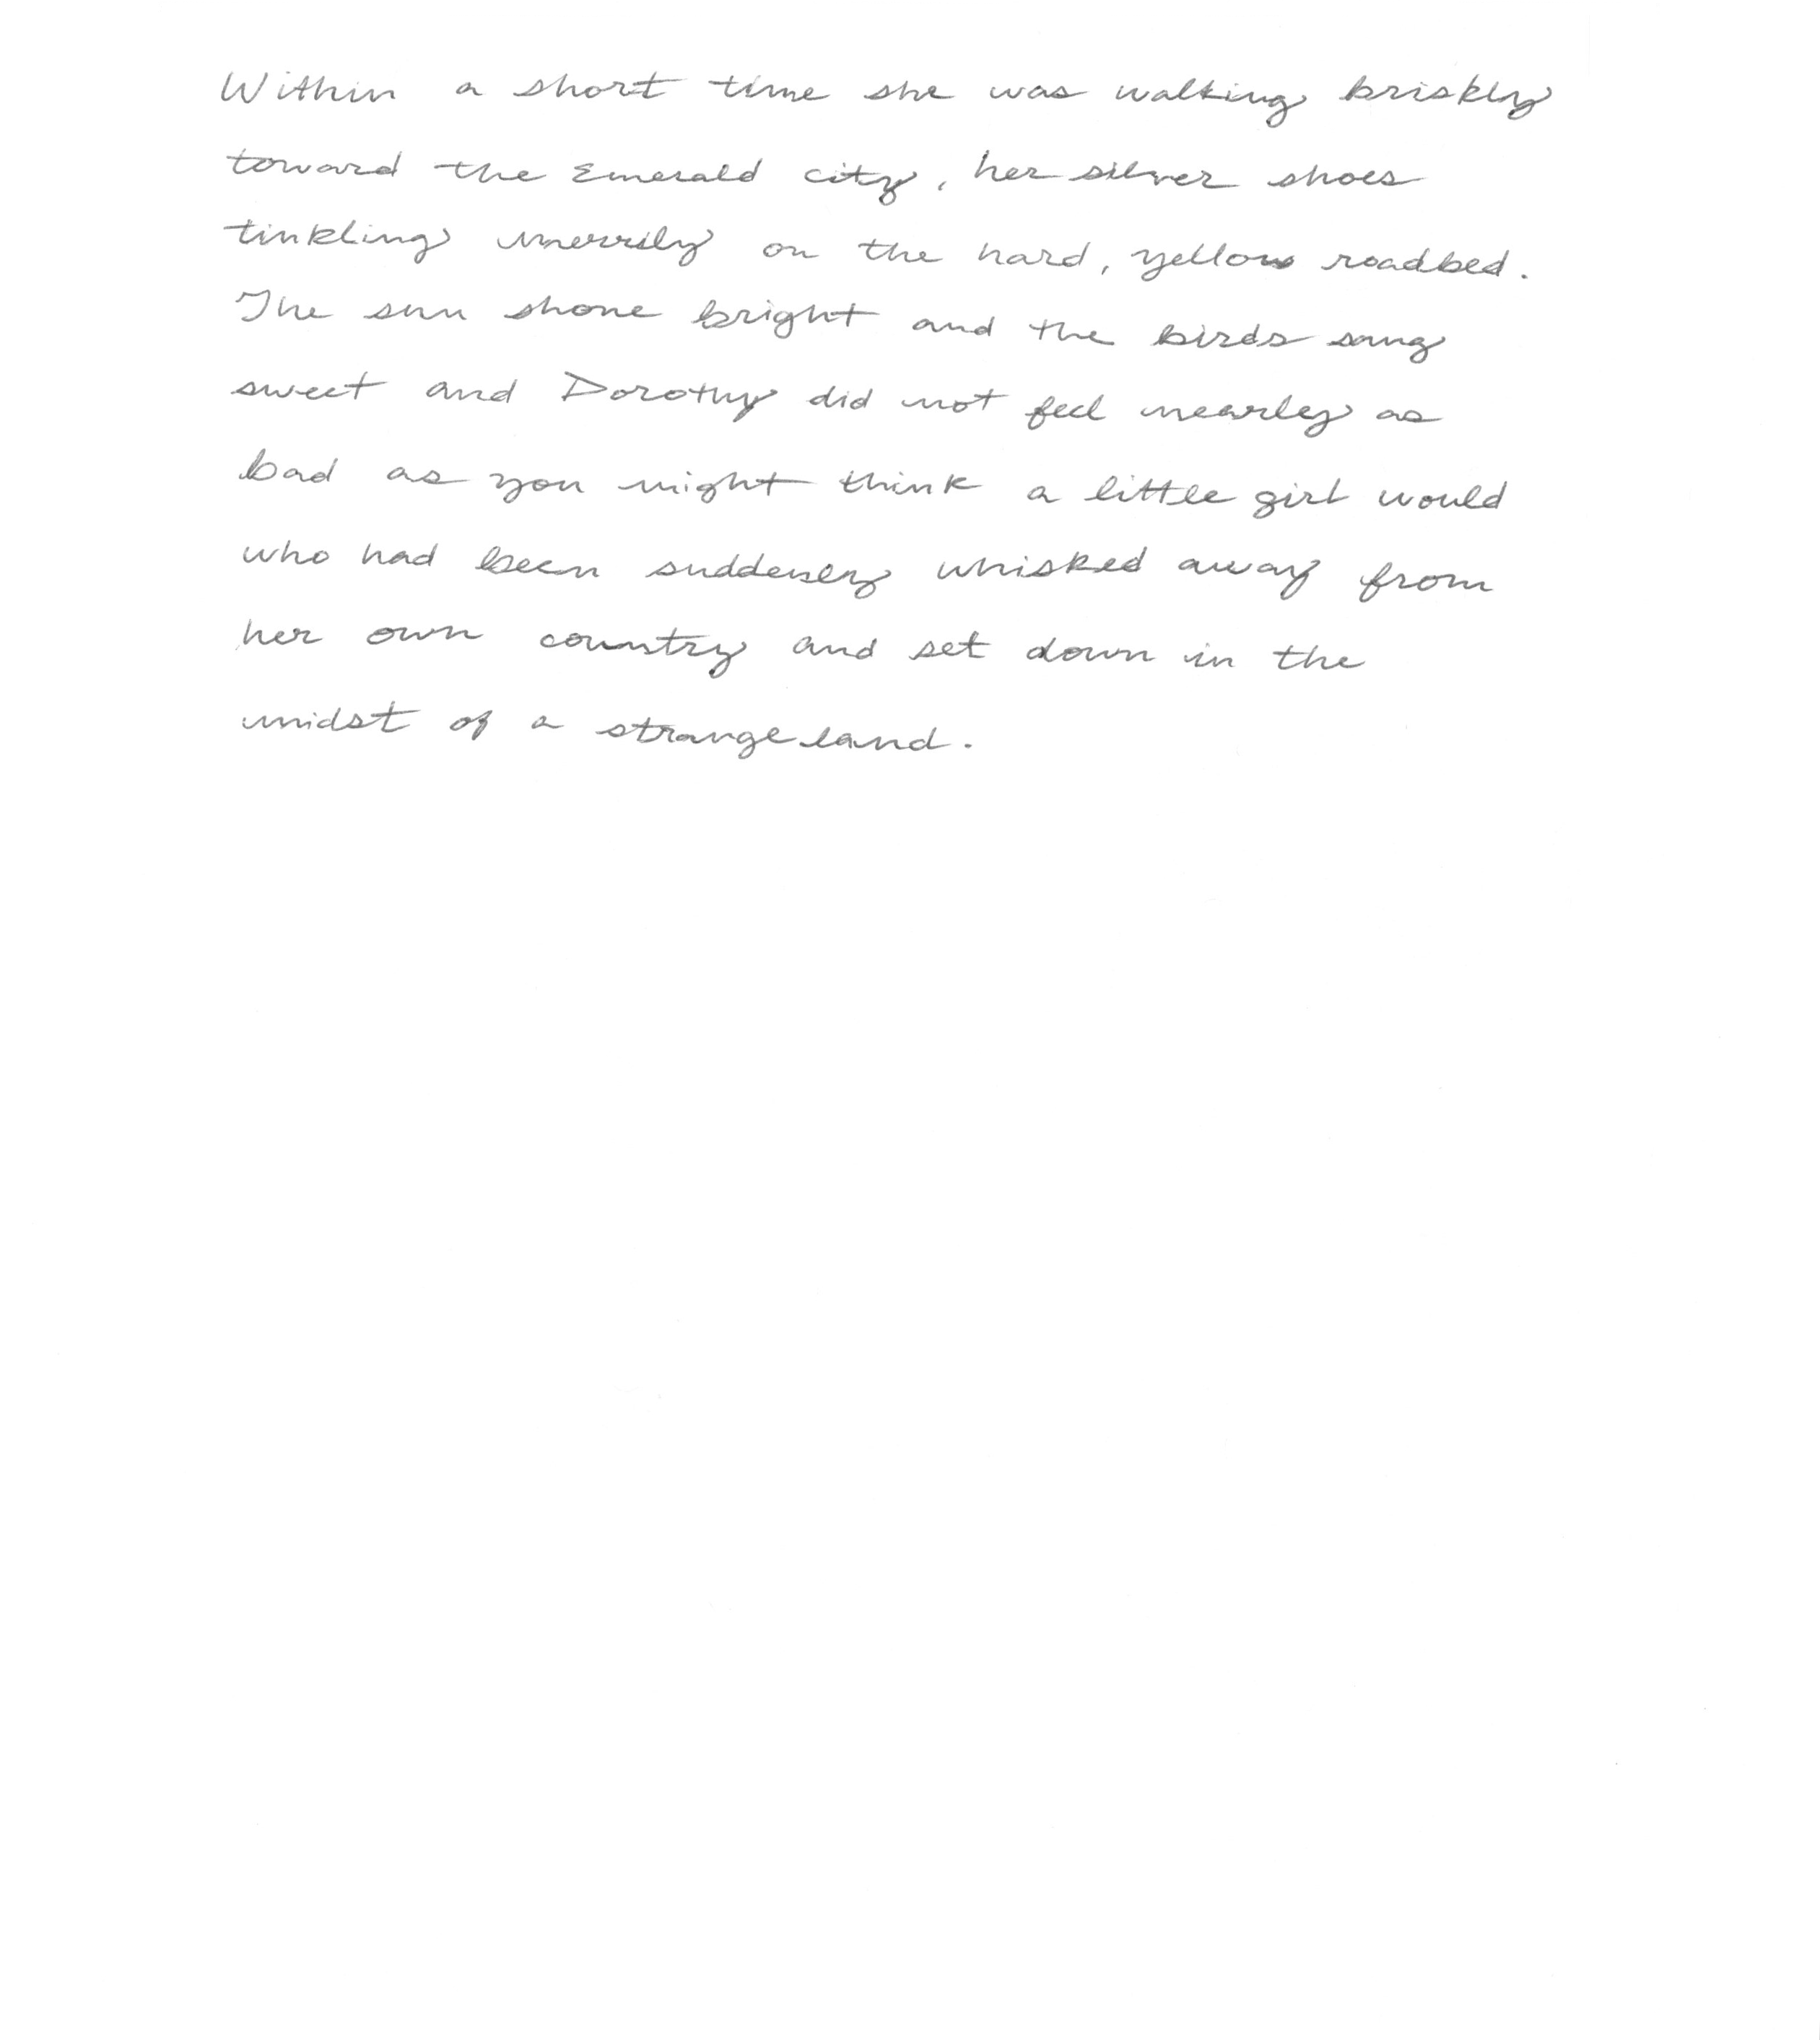 Within a short time she was walking briskly
toward the Emerald city, her silver shoes
tinkling merrily on the hard, yellow roadbed.
The sun shone bright and the birds sang
sweet and Dorothy did not feel nearly as
bad as you might think a little girl would
who had been suddenly whisked away from
her own country and set down in the
midst of a strange land.